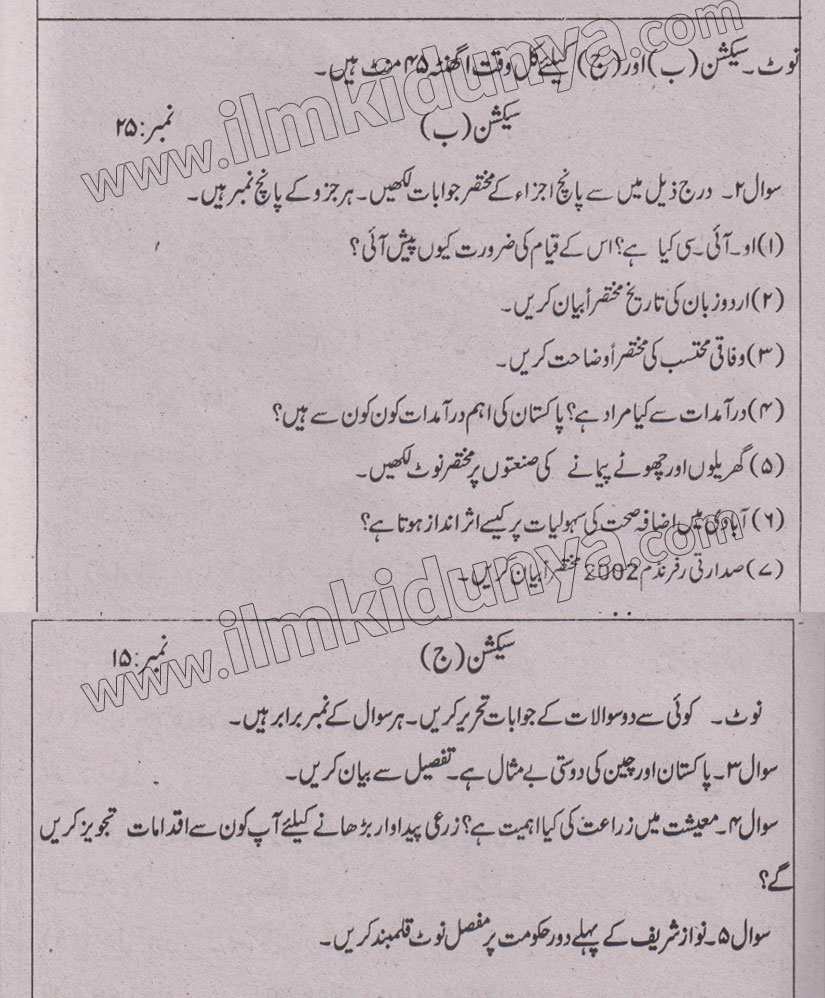 نوٹ۔ سیکشن (ب) اور (ج) کیلئے کل وقت ۱گھنٹہ ۴۵ منٹ ہیں۔
سیکشن (ب) نمبر: ۲۵
سوال ۲۔ درج ذیل میں سے پانچ اجزاء کے مختصر جوابات لکھیں۔ ہر جزو کے پانچ نمبر ہیں۔
(۱) او۔ آئی۔ سی کیا ہے؟ اس کے قیام کی ضرورت کیوں پیش آئی؟
(۲) اردو زبان کی تاریخ مختصراً بیان کریں۔
(۳) وفاقی محتسب کی مختصراً وضاحت کریں۔
(۴) درآمدات سے کیا مراد ہے؟ پاکستان کی اہم درآمدات کون کون سے ہیں؟
(۵) گھریلوں اور چھوٹے پیمانے کی صنعتوں پر مختصر نوٹ لکھیں۔
(۶) آبادی میں اضافہ صحت کی سہولیات پر کیسے اثر انداز ہوتا ہے؟
(۷) صدارتی رفرنڈم 2002 مختصراً بیان کریں۔
سیکشن (ج) نمبر: ۱۵
نوٹ۔ کوئی سے دو سوالات کے جوابات تحریر کریں۔ ہر سوال کے نمبر برابر ہیں۔
سوال ۳۔ پاکستان اور چین کی دوستی بے مثال ہے۔ تفصیل سے بیان کریں۔
سوال ۴۔ معیشت میں زراعت کی کیا اہمیت ہے؟ زرعی پیداوار بڑھانے کیلئے آپ کون سے اقدامات تجویز کریں
گے؟
سوال ۵۔ نواز شریف کے پہلے دور حکومت پر مفصل نوٹ قلمبند کریں۔
www.ilmkidunya.com
www.ilmkidunya.com